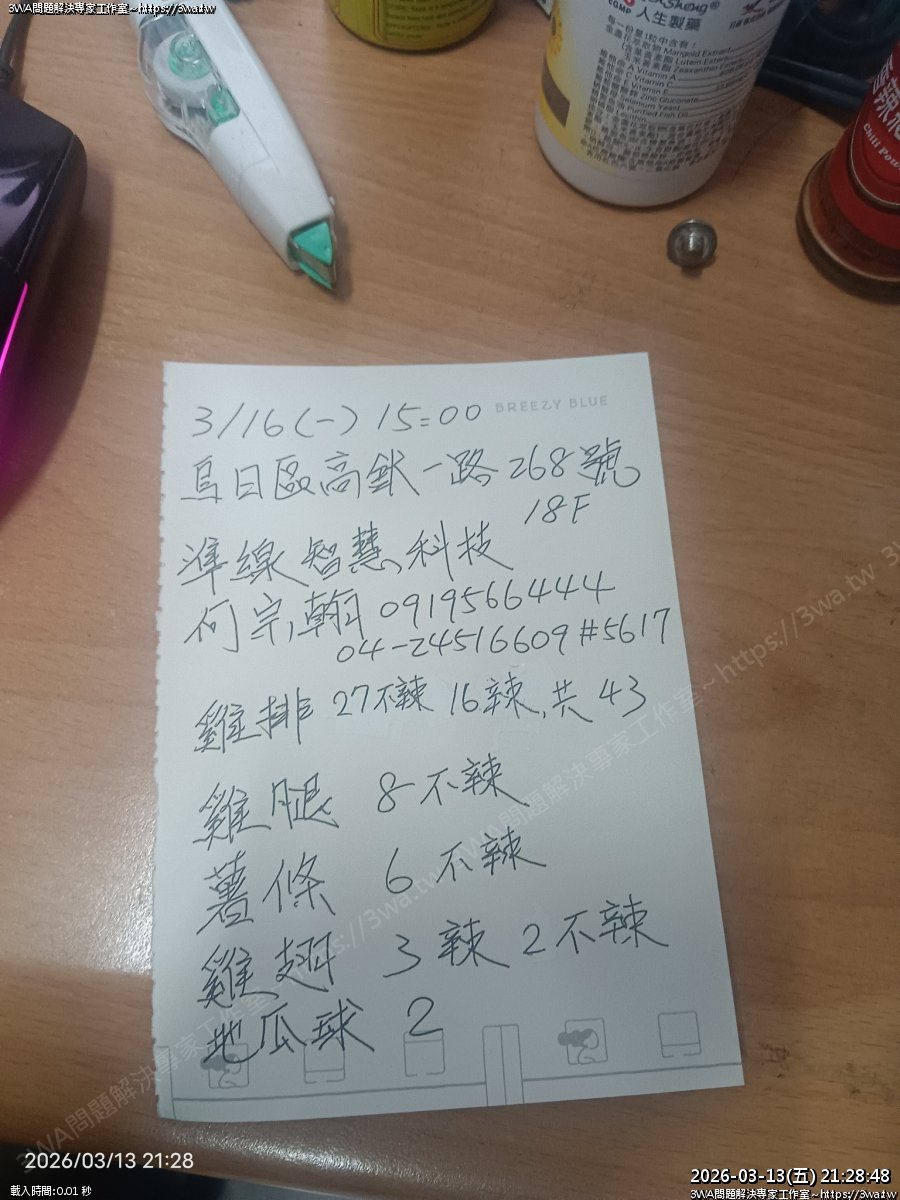 3WA問題解決專家工作室~https://3wa.tw
人生製藥
Marigold Extract
Lutein Esters
Zeaxanthin
Vitamin A
Vitamin C
Vitamin E
Zinc Gluconate
Selenium Yeast
Purified Fish Oil
Lecithin
香辣
Chili Pow
BREEZY BLUE
3/16(一) 15:00
烏日區高鉄一路268號
18F
準線智慧科技
何宗翰 0919566444
04-24516609#5617
雞排 27不辣 16辣,共43
雞腿 8不辣
薯條 6不辣
雞翅 3辣 2不辣
地瓜球 2
3WA問題解決專家工作室~https://3wa.tw
2026/03/13 21:28
載入時間:0.01 秒
2026-03-13(五) 21:28:48
3WA問題解決專家工作室~https://3wa.tw